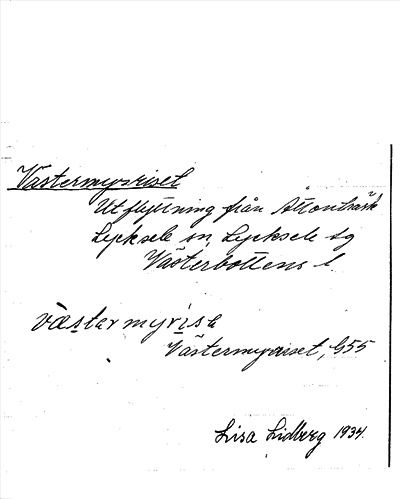 Västermyrriset
Utflyttning från Attonträsk
Lycksele sn, Lycksele sg
Västerbottens l.
västermyrisə
Västermyrriset, G55
Lisa Lidberg 1934.